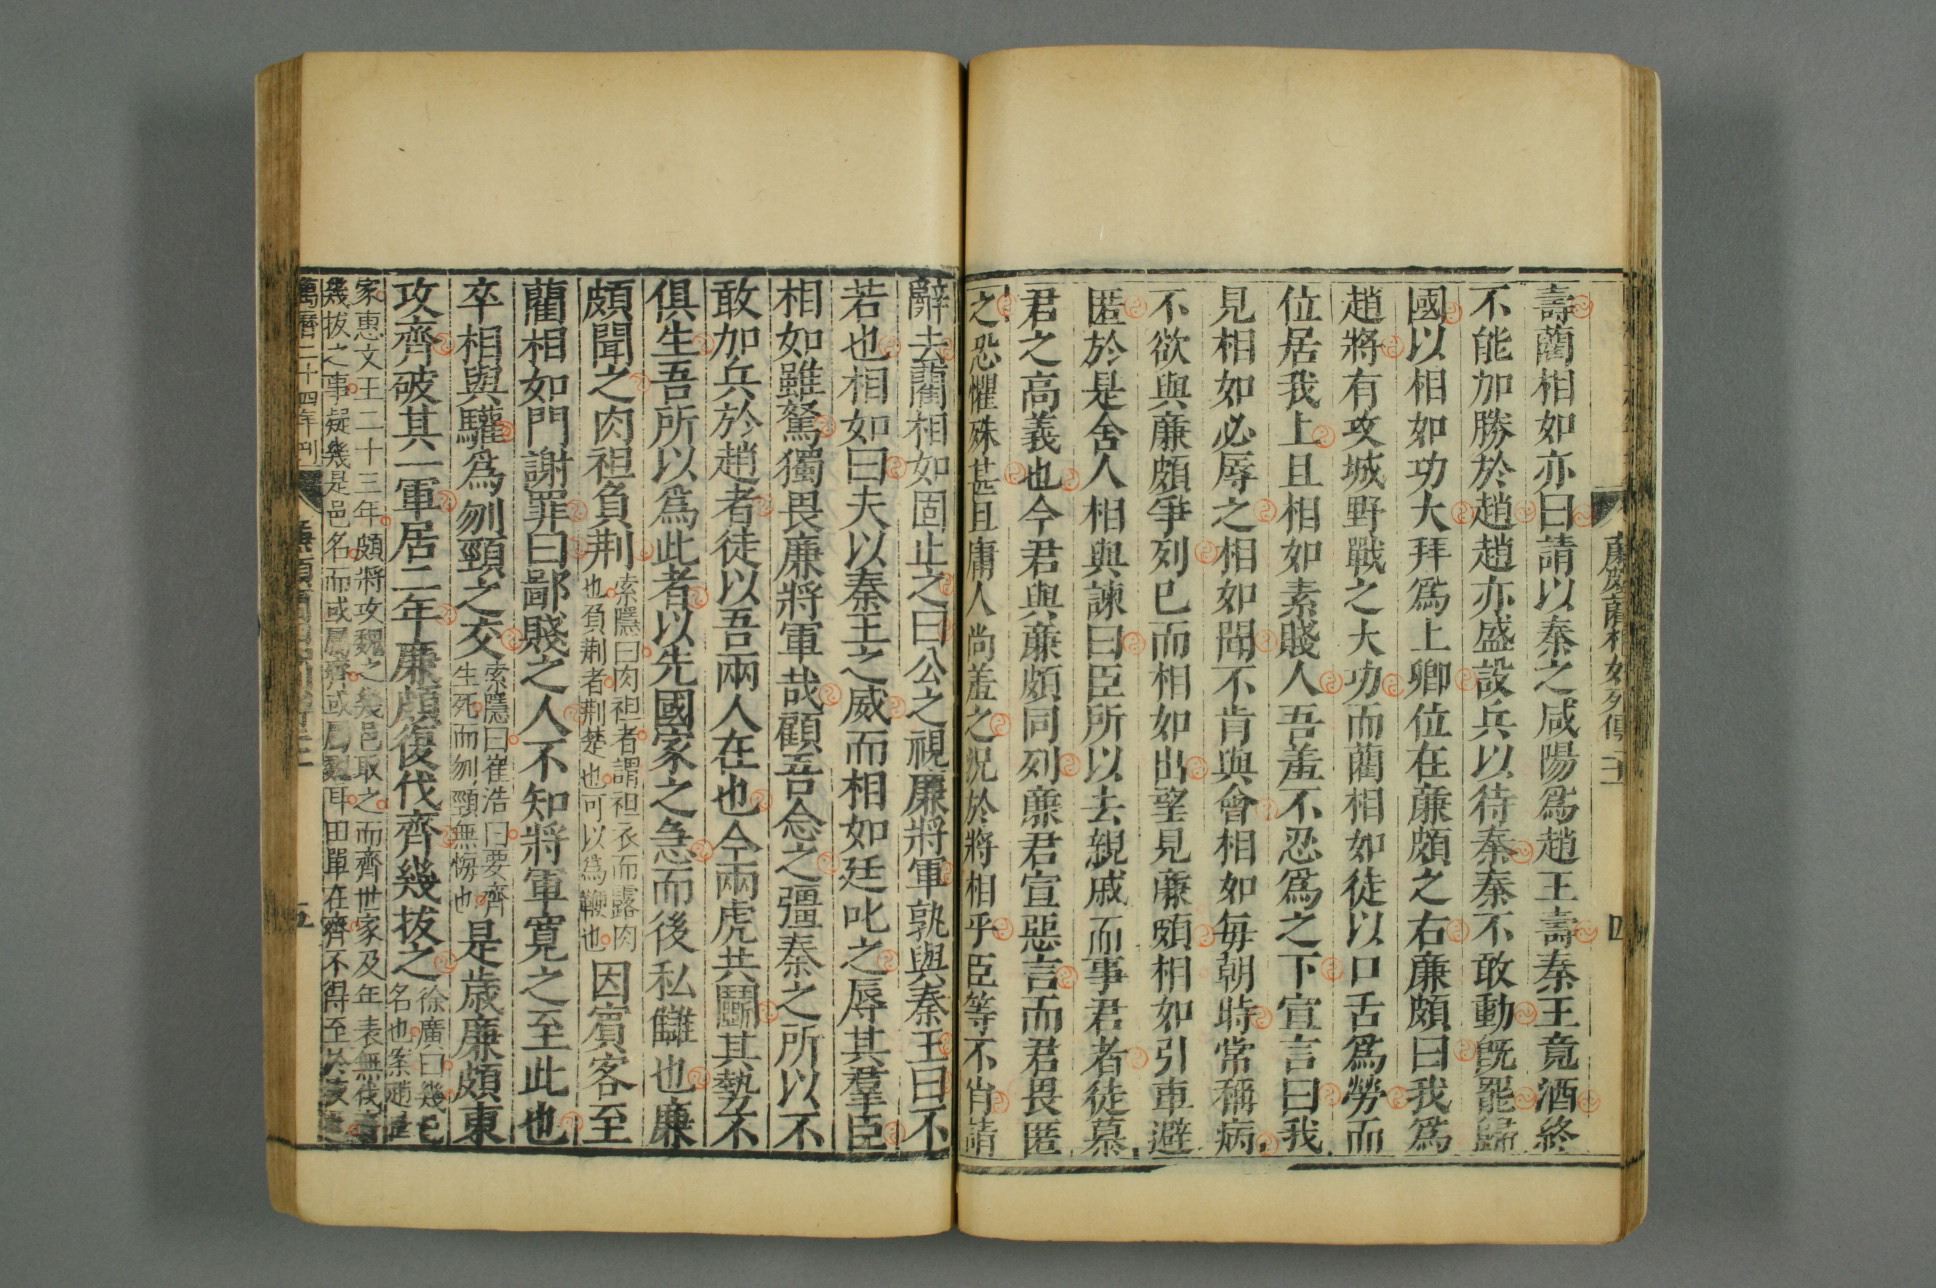 廉頗藺相如列傳二十一
四
壽藺相如亦曰請以秦之咸陽爲趙王壽秦王竟酒終
不能加勝於趙趙亦盛設兵以待秦秦不敢動旣罷歸
國以相如功大拜爲上卿位在廉頗之右廉頗曰我爲
趙將有攻城野戰之大功而藺相如徒以口舌爲勞而
位居我上且相如素賤人吾羞不忍爲之下宣言曰我
見相如必辱之相如聞不肯與會相如每朝時常稱病
不欲與廉頗爭列已而相如出望見廉頗相如引車避
匿於是舍人相與諫曰臣所以去親戚而事君者徒慕
君之高義也今君與廉頗同列廉君宣惡言而君畏匿
之恐懼殊甚且庸人尚羞之況於將相乎臣等不肖請
辭去藺相如固止之曰公之視廉將軍孰與秦王曰不
若也相如曰夫以秦王之威而相如廷叱之辱其羣臣
相如雖駑獨畏廉將軍哉顧吾念之彊秦之所以不
敢加兵於趙者徒以吾兩人在也今兩虎共鬭其勢不
俱生吾所以爲此者以先國家之急而後私讎也廉
頗聞之肉袒負荆
索隱曰肉袒者謂袒衣而露肉
也負荆者荆楚也可以爲鞭也
因賓客至
藺相如門謝罪曰鄙賤之人不知將軍寬之至此也
卒相與驩爲刎頸之交
索隱曰崔浩曰要齊
生死而刎頸無悔也
是歲廉頗東
攻齊破其一軍居二年廉頗復伐齊幾拔之
徐廣曰幾邑
名也案趙世
家惠文王二十三年頗將攻魏之幾邑取之而齊世家及年表無伐齊
幾拔之事疑幾是邑名而或屬齊或屬魏耳田單在齊不得至於拔也
萬曆二十四年刊
五